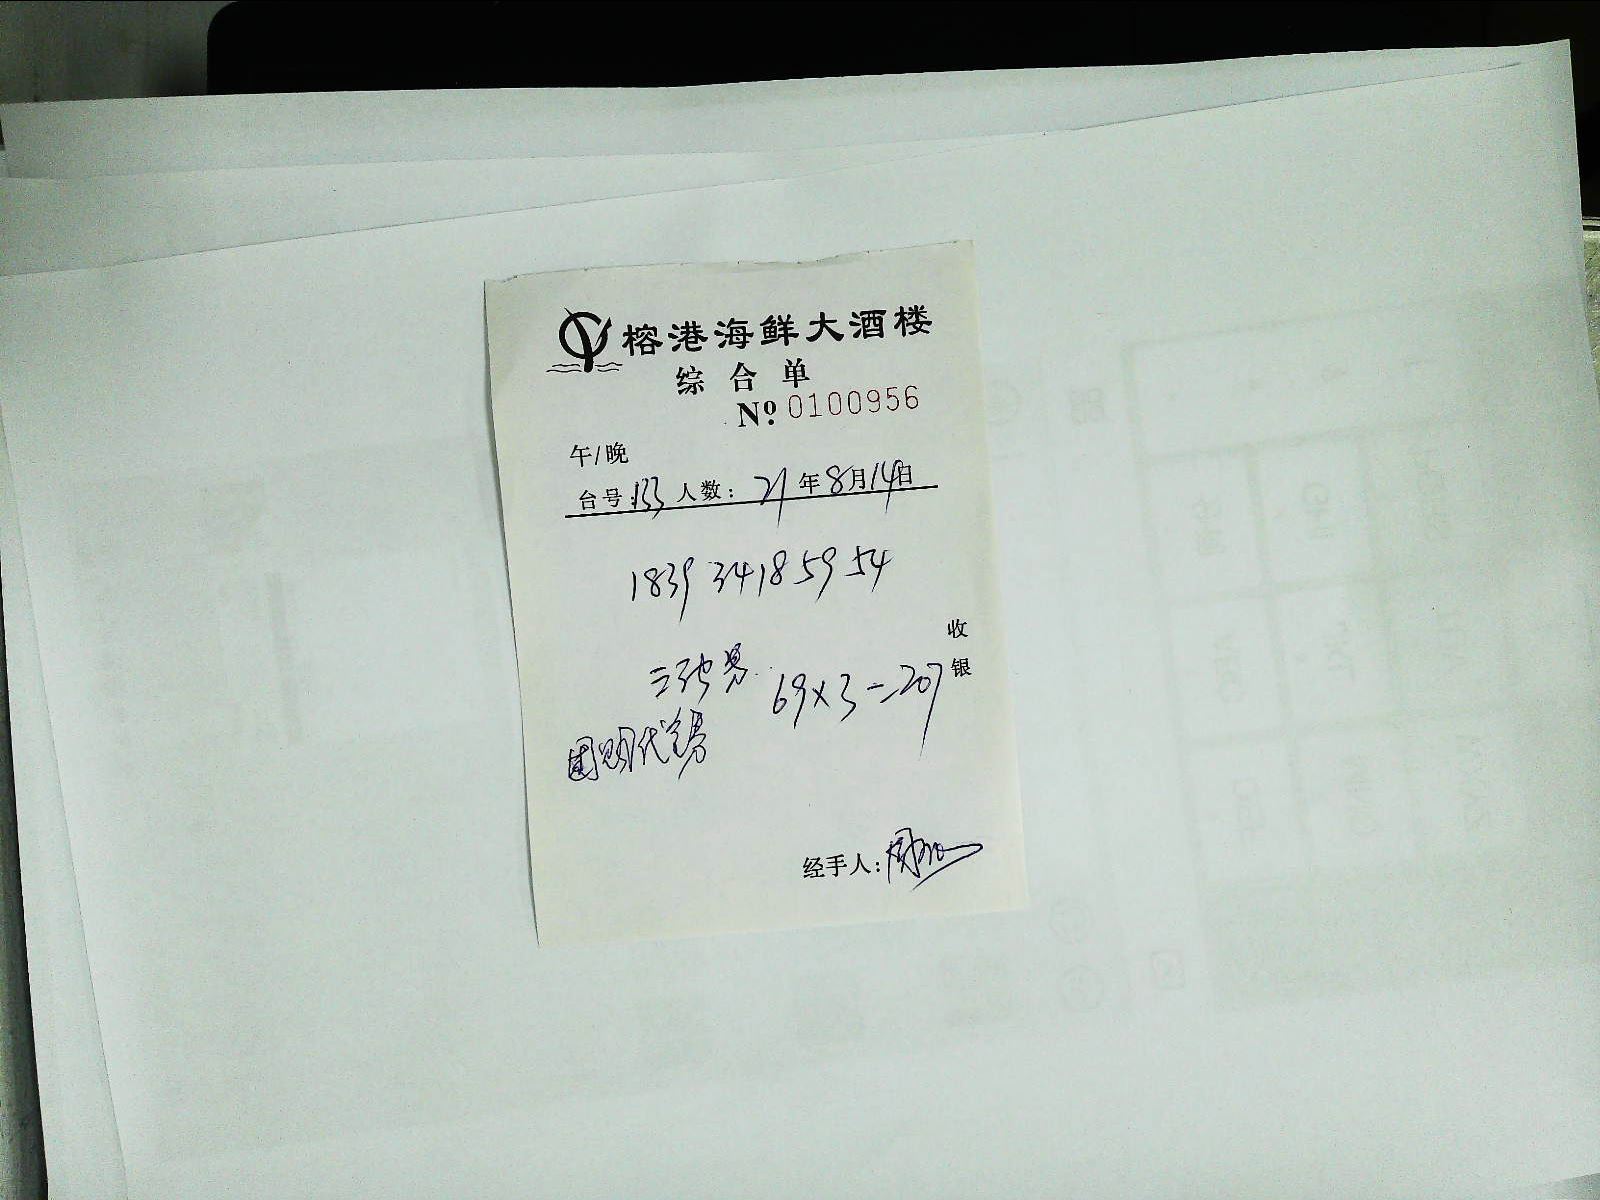 榕港海鲜大酒楼
综合单
Nº 0100956
午/晚
台号:133 人数: 21年8月14日
1839 3418 59 54
收银
三张券 69×3=207
团购代金券
经手人: